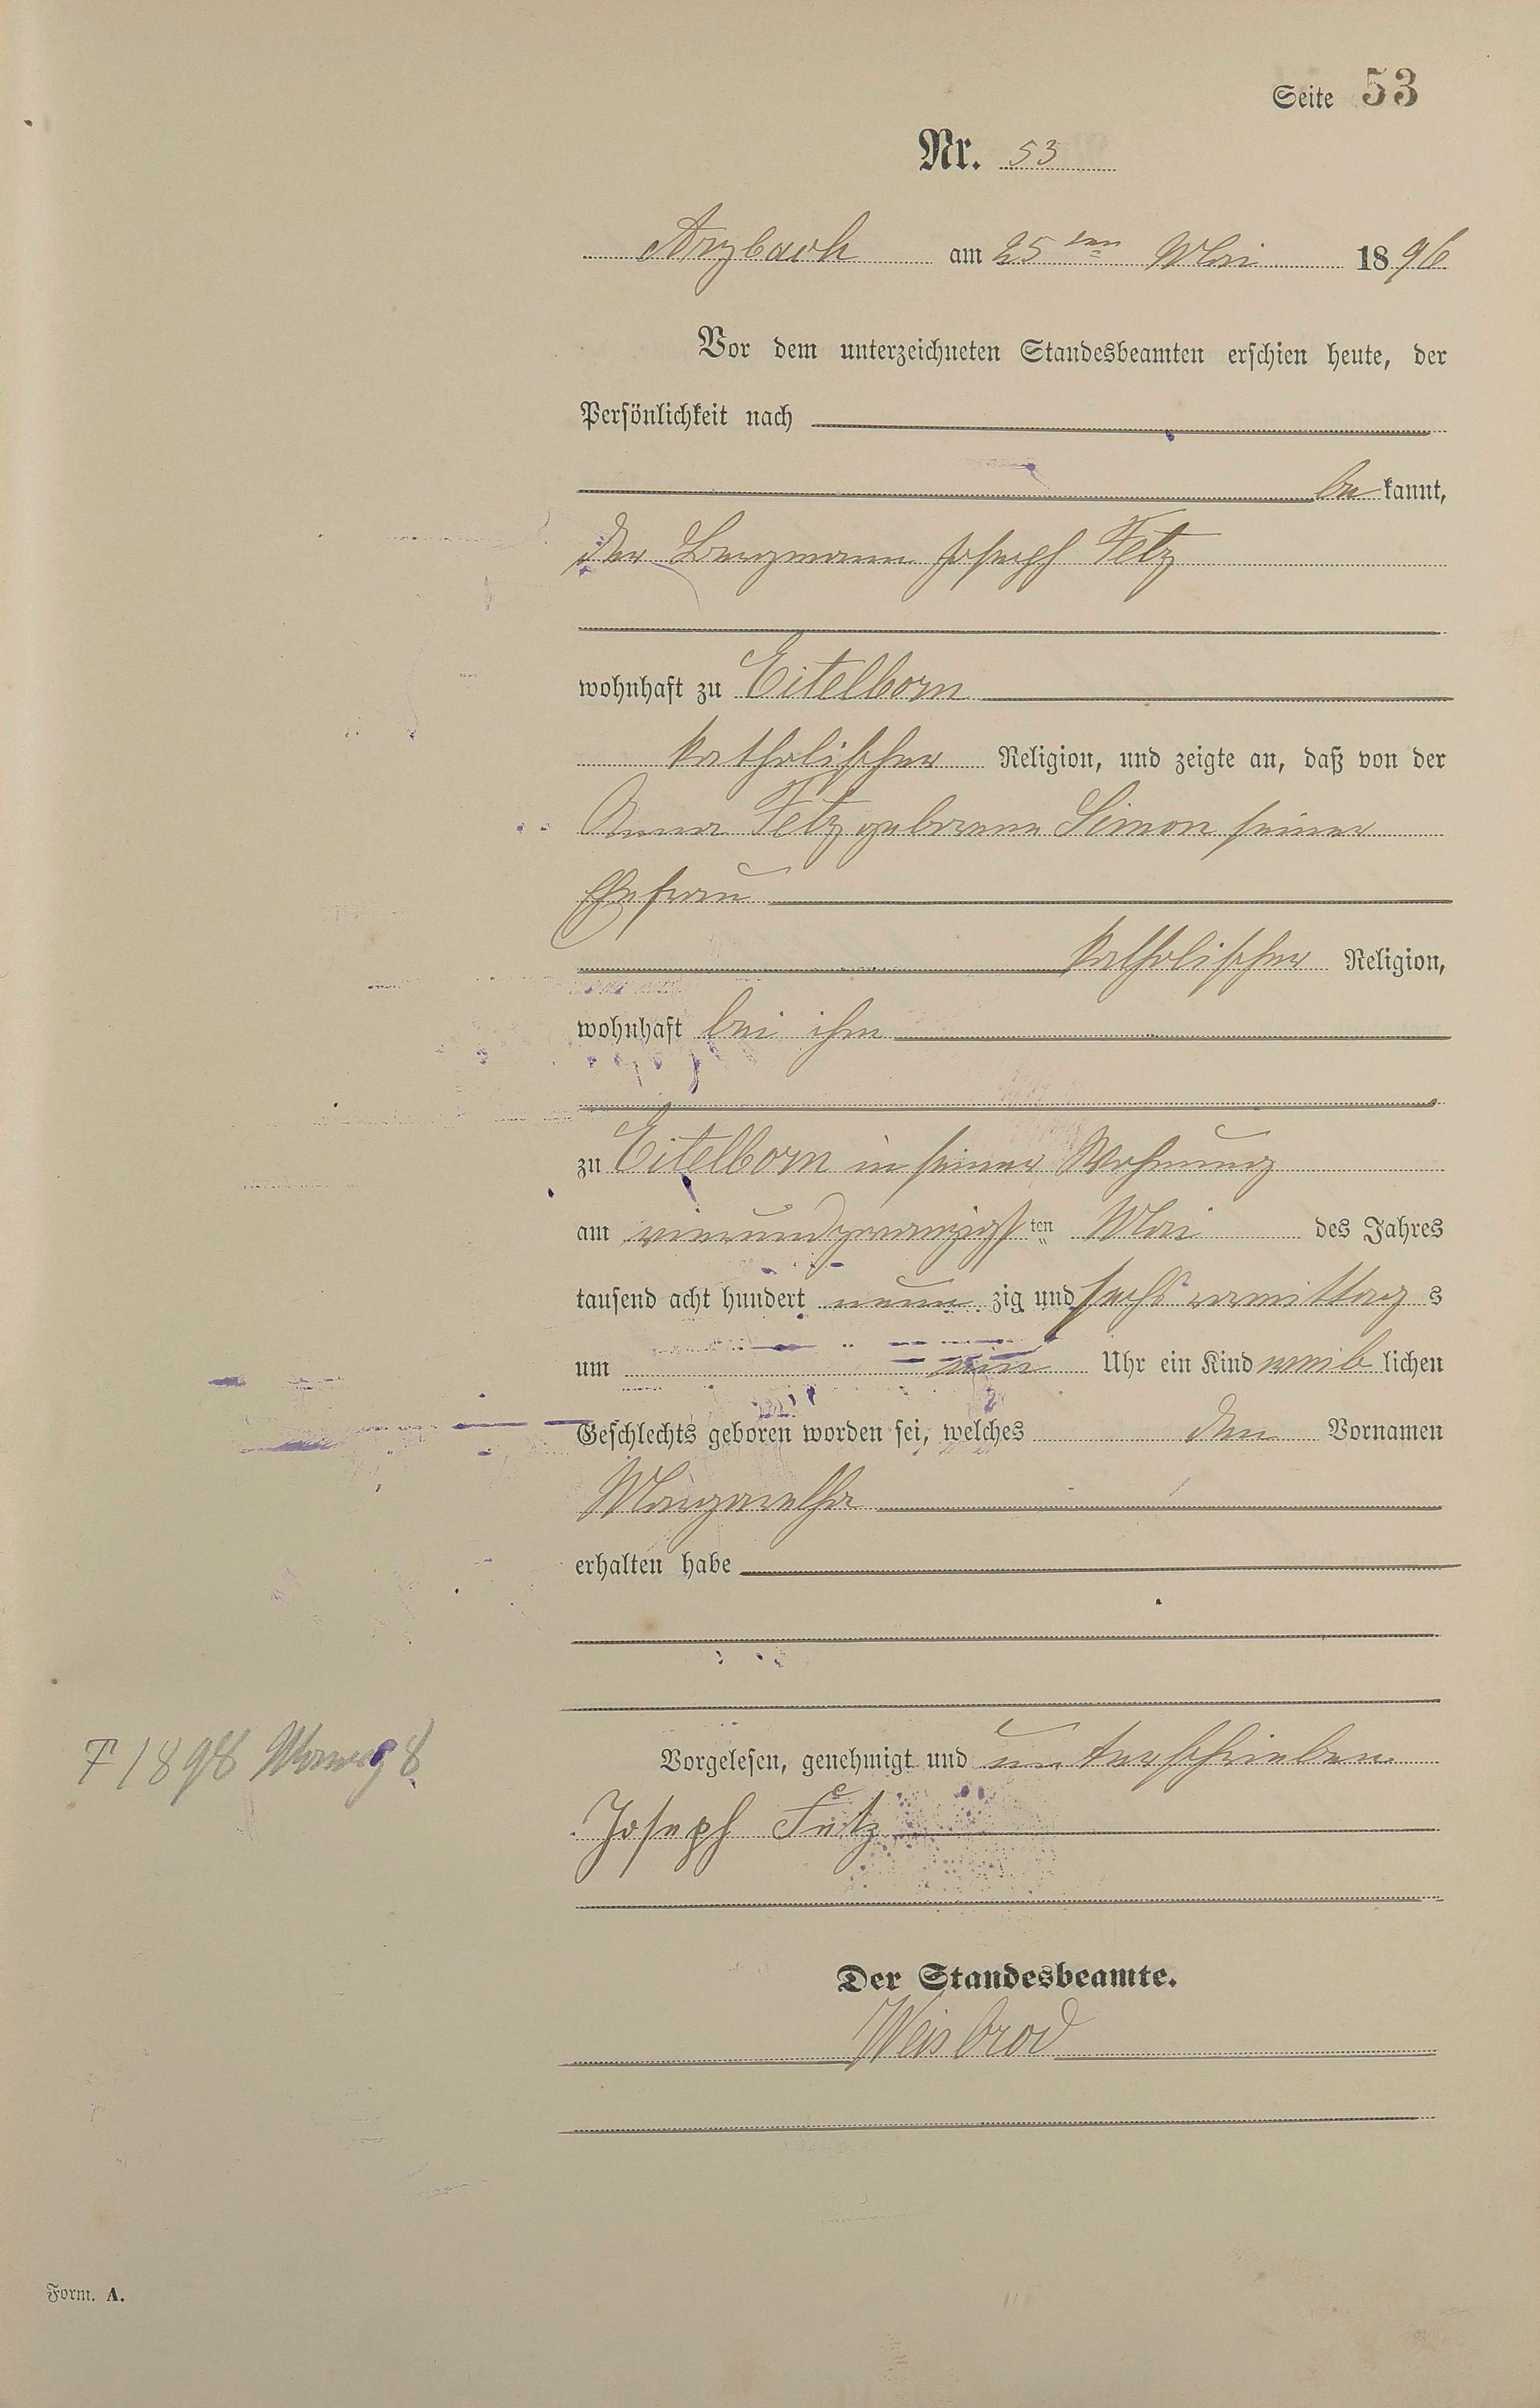 Seite 53
Nr. 53
Arzbach am 25ten Mai 1896
Vor dem unterzeichneten Standesbeamten erschien heute, der
Persönlichkeit nach
be kannt,
der Bergmann Joseph Fetz
wohnhaft zu Eitelborn
katholischer Religion, und zeigte an, daß von der
Anna Fetz geborene Simon seiner
Ehefrau
katholischer Religion,
wohnhaft bei ihm
zu Eitelborn in seiner Wohnung
am vierundzwanzigsten Mai des Jahres
tausend acht hundert neun zig und sechs vormittags
um Uhr ein Kind weiblichen
Geschlechts geboren worden sei, welches den Vornamen
Margaretha
erhalten habe
Vorgelesen, genehmigt und unterschrieben
Joseph Fetz
† 1898
Der Standesbeamte.
Weisbrod
Form. A.